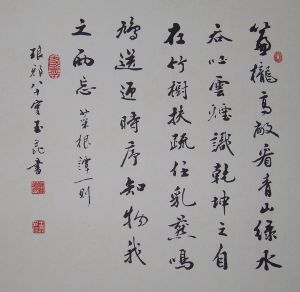 簾櫳高敞看青山綠水
吞吐雲煙識乾坤之自
在竹樹扶疏任乳燕鳴
鳩送迎時序知物我
之兩忘 菜根譚一則
琅邪 書